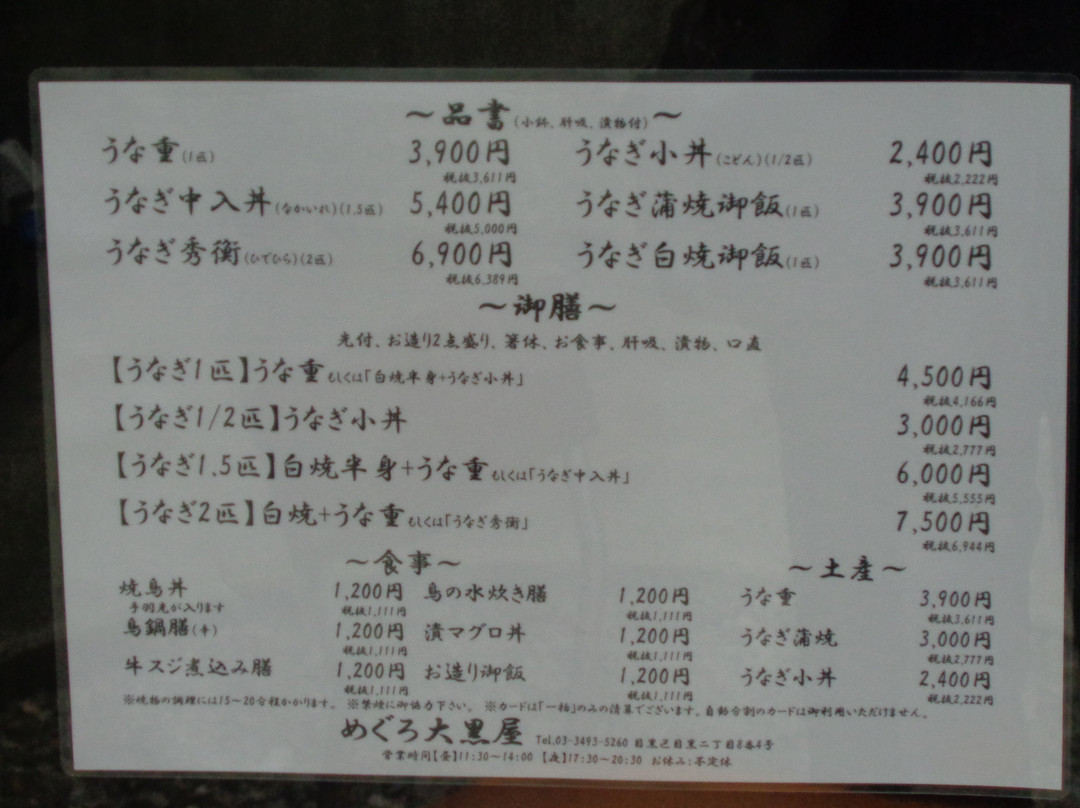 ～品書(小鉢、肝吸、漬物付)～
うな重(1匹) 3,900円 うなぎ小丼(こどん)(1/2匹) 2,400円
税抜3,611円 税抜2,222円
うなぎ中入丼(なかいれ)(1.5匹) 5,400円 うなぎ蒲焼御飯(1匹) 3,900円
税抜5,000円 税抜3,611円
うなぎ秀衡(ひでひら)(2匹) 6,900円 うなぎ白焼御飯(1匹) 3,900円
税抜6,389円 税抜3,611円
～御膳～
先付、お造り2点盛り、箸休、お食事、肝吸、漬物、口直
【うなぎ1匹】うな重もしくは「白焼半身+うなぎ小丼」 4,500円
税抜4,166円
【うなぎ1/2匹】うなぎ小丼 3,000円
税抜2,777円
【うなぎ1.5匹】白焼半身+うな重もしくは「うなぎ中入丼」 6,000円
税抜5,555円
【うなぎ2匹】白焼+うな重もしくは「うなぎ秀衡」 7,500円
税抜6,944円
～食事～ ～土産～
焼鳥丼 1,200円 鳥の水炊き膳 1,200円 うな重 3,900円
手羽先が入ります 税抜1,111円 税抜1,111円 税抜3,611円
鳥鍋膳(辛) 1,200円 漬マグロ丼 1,200円 うなぎ蒲焼 3,000円
税抜1,111円 税抜1,111円 税抜2,777円
牛スジ煮込み膳 1,200円 お造り御飯 1,200円 うなぎ小丼 2,400円
税抜1,111円 税抜1,111円 税抜2,222円
※焼物の調理には15～20分程かかります。 ※禁煙に御協力下さい。 ※カードは「一括」のみの清算でございます。自動分割のカードは御利用いただけません。
めぐろ大黒屋 Tel.03-3493-5260 目黒区目黒二丁目8番4号
営業時間【昼】11:30～14:00 【夜】17:30～20:30 お休み:不定休